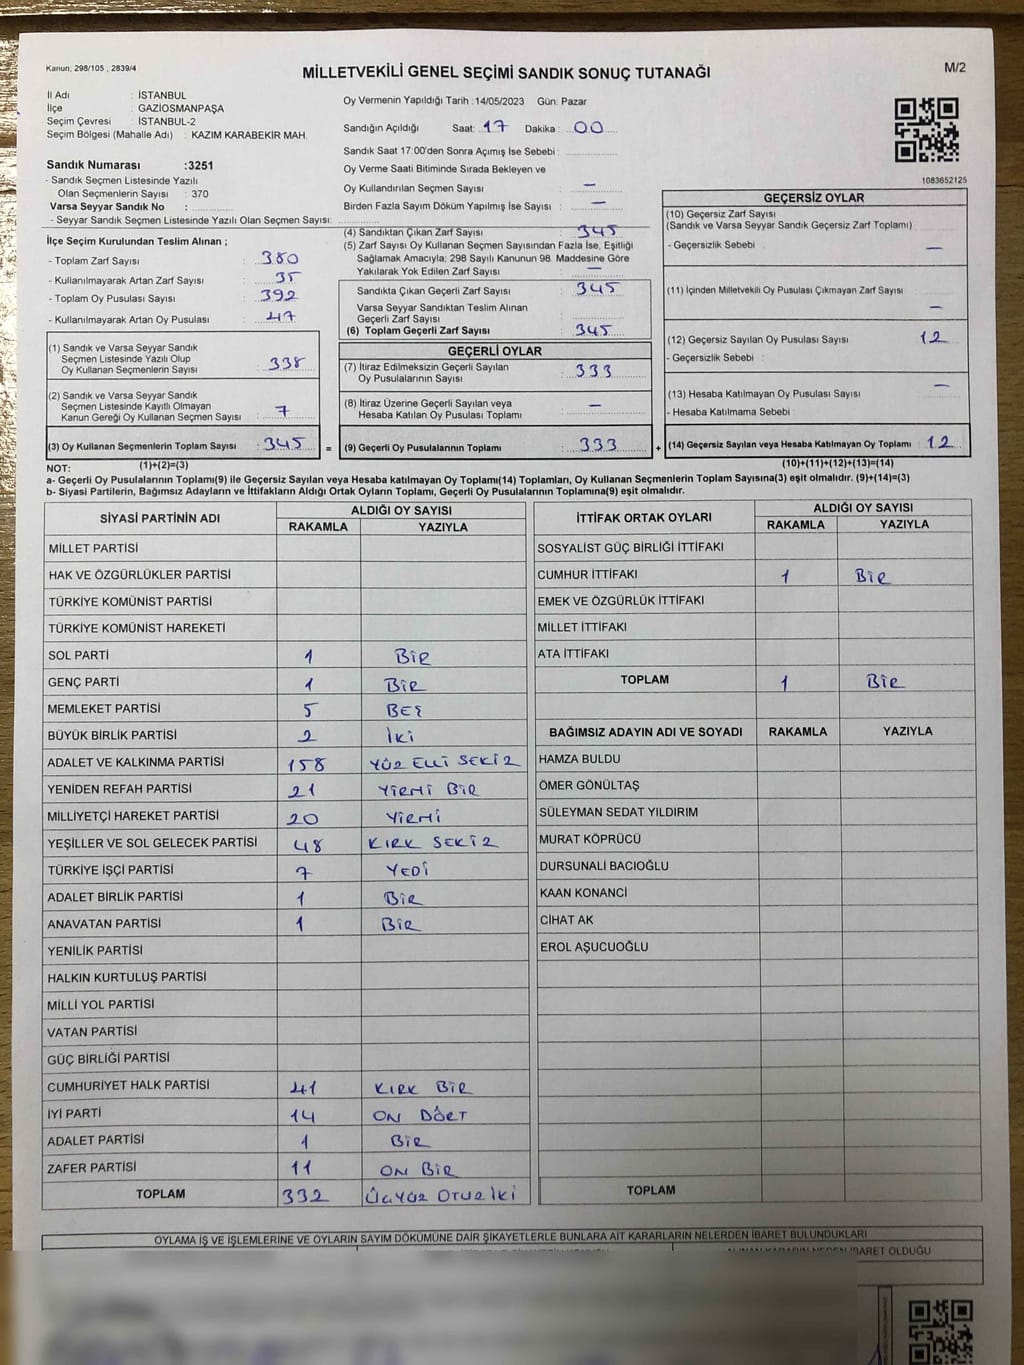 Kanun; 298/105 , 2839/4
MİLLETVEKİLİ GENEL SEÇİMİ SANDIK SONUÇ TUTANAĞI
M/2
İl Adı : İSTANBUL
İlçe : GAZİOSMANPAŞA
Seçim Çevresi : İSTANBUL-2
Seçim Bölgesi (Mahalle Adı) : KAZIM KARABEKİR MAH.
Sandık Numarası :3251
- Sandık Seçmen Listesinde Yazılı
Olan Seçmenlerin Sayısı : 370
Varsa Seyyar Sandık No :
- Seyyar Sandık Seçmen Listesinde Yazılı Olan Seçmen Sayısı:
Oy Vermenin Yapıldığı Tarih : 14/05/2023 Gün: Pazar
Sandığın Açıldığı Saat: 17 Dakika : 00
Sandık Saat 17:00'den Sonra Açımış İse Sebebi :
Oy Verme Saati Bitiminde Sırada Bekleyen ve
Oy Kullandırılan Seçmen Sayısı : —
Birden Fazla Sayım Döküm Yapılmış İse Sayısı : —
1083652125
İlçe Seçim Kurulundan Teslim Alınan ;
- Toplam Zarf Sayısı : 380
- Kullanılmayarak Artan Zarf Sayısı : 35
- Toplam Oy Pusulası Sayısı : 392
- Kullanılmayarak Artan Oy Pusulası : 47
(1) Sandık ve Varsa Seyyar Sandık
Seçmen Listesinde Yazılı Olup
Oy Kullanan Seçmenlerin Sayısı : 338
(2) Sandık ve Varsa Seyyar Sandık
Seçmen Listesinde Kayıtlı Olmayan
Kanun Gereği Oy Kullanan Seçmen Sayısı : 7
(3) Oy Kullanan Seçmenlerin Toplam Sayısı : 345 =
(1)+(2)=(3)
(4) Sandıktan Çıkan Zarf Sayısı : 345
(5) Zarf Sayısı Oy Kullanan Seçmen Sayısından Fazla İse, Eşitliği
Sağlamak Amacıyla; 298 Sayılı Kanunun 98. Maddesine Göre
Yakılarak Yok Edilen Zarf Sayısı : —
Sandıkta Çıkan Geçerli Zarf Sayısı : 345
Varsa Seyyar Sandıktan Teslim Alınan
Geçerli Zarf Sayısı :
(6) Toplam Geçerli Zarf Sayısı : 345
GEÇERLİ OYLAR
(7) İtiraz Edilmeksizin Geçerli Sayılan
Oy Pusulalarının Sayısı : 333
(8) İtiraz Üzerine Geçerli Sayılan veya
Hesaba Katılan Oy Pusulası Toplamı : —
(9) Geçerli Oy Pusulalarının Toplamı : 333 +
GEÇERSİZ OYLAR
(10) Geçersiz Zarf Sayısı
(Sandık ve Varsa Seyyar Sandık Geçersiz Zarf Toplamı) :
- Geçersizlik Sebebi : —
(11) İçinden Milletvekili Oy Pusulası Çıkmayan Zarf Sayısı : —
(12) Geçersiz Sayılan Oy Pusulası Sayısı : 12
- Geçersizlik Sebebi :
(13) Hesaba Katılmayan Oy Pusulası Sayısı : —
- Hesaba Katılmama Sebebi :
(14) Geçersiz Sayılan veya Hesaba Katılmayan Oy Toplamı : 12
(10)+(11)+(12)+(13)=(14)
NOT:
a- Geçerli Oy Pusulalarının Toplamı(9) ile Geçersiz Sayılan veya Hesaba katılmayan Oy Toplamı(14) Toplamları, Oy Kullanan Seçmenlerin Toplam Sayısına(3) eşit olmalıdır. (9)+(14)=(3)
b- Siyasi Partilerin, Bağımsız Adayların ve İttifakların Aldığı Ortak Oyların Toplamı, Geçerli Oy Pusulalarının Toplamına(9) eşit olmalıdır.
SİYASİ PARTİNİN ADI ALDIĞI OY SAYISI
RAKAMLA YAZIYLA
MİLLET PARTİSİ
HAK VE ÖZGÜRLÜKLER PARTİSİ
TÜRKİYE KOMÜNİST PARTİSİ
TÜRKİYE KOMÜNİST HAREKETİ
SOL PARTİ 1 BİR
GENÇ PARTİ 1 BİR
MEMLEKET PARTİSİ 5 BEŞ
BÜYÜK BİRLİK PARTİSİ 2 İKİ
ADALET VE KALKINMA PARTİSİ 158 YÜZ ELLİ SEKİZ
YENİDEN REFAH PARTİSİ 21 YİRMİ BİR
MİLLİYETÇİ HAREKET PARTİSİ 20 YİRMİ
YEŞİLLER VE SOL GELECEK PARTİSİ 48 KIRK SEKİZ
TÜRKİYE İŞÇİ PARTİSİ 7 YEDİ
ADALET BİRLİK PARTİSİ 1 BİR
ANAVATAN PARTİSİ 1 BİR
YENİLİK PARTİSİ
HALKIN KURTULUŞ PARTİSİ
MİLLİ YOL PARTİSİ
VATAN PARTİSİ
GÜÇ BİRLİĞİ PARTİSİ
CUMHURİYET HALK PARTİSİ 41 KIRK BİR
İYİ PARTİ 14 ON DÖRT
ADALET PARTİSİ 1 BİR
ZAFER PARTİSİ 11 ON BİR
TOPLAM 332 ÜÇYÜZ OTUZ İKİ
İTTİFAK ORTAK OYLARI ALDIĞI OY SAYISI
RAKAMLA YAZIYLA
SOSYALİST GÜÇ BİRLİĞİ İTTİFAKI
CUMHUR İTTİFAKI 1 BİR
EMEK VE ÖZGÜRLÜK İTTİFAKI
MİLLET İTTİFAKI
ATA İTTİFAKI
TOPLAM 1 BİR
BAĞIMSIZ ADAYIN ADI VE SOYADI RAKAMLA YAZIYLA
HAMZA BULDU
ÖMER GÖNÜLTAŞ
SÜLEYMAN SEDAT YILDIRIM
MURAT KÖPRÜCÜ
DURSUNALİ BACIOĞLU
KAAN KONANCİ
CİHAT AK
EROL AŞUCUOĞLU
TOPLAM
OYLAMA İŞ VE İŞLEMLERİNE VE OYLARIN SAYIM DÖKÜMÜNE DAİR ŞİKAYETLERLE BUNLARA AİT KARARLARIN NELERDEN İBARET BULUNDUKLARI
İBARET OLDUĞU